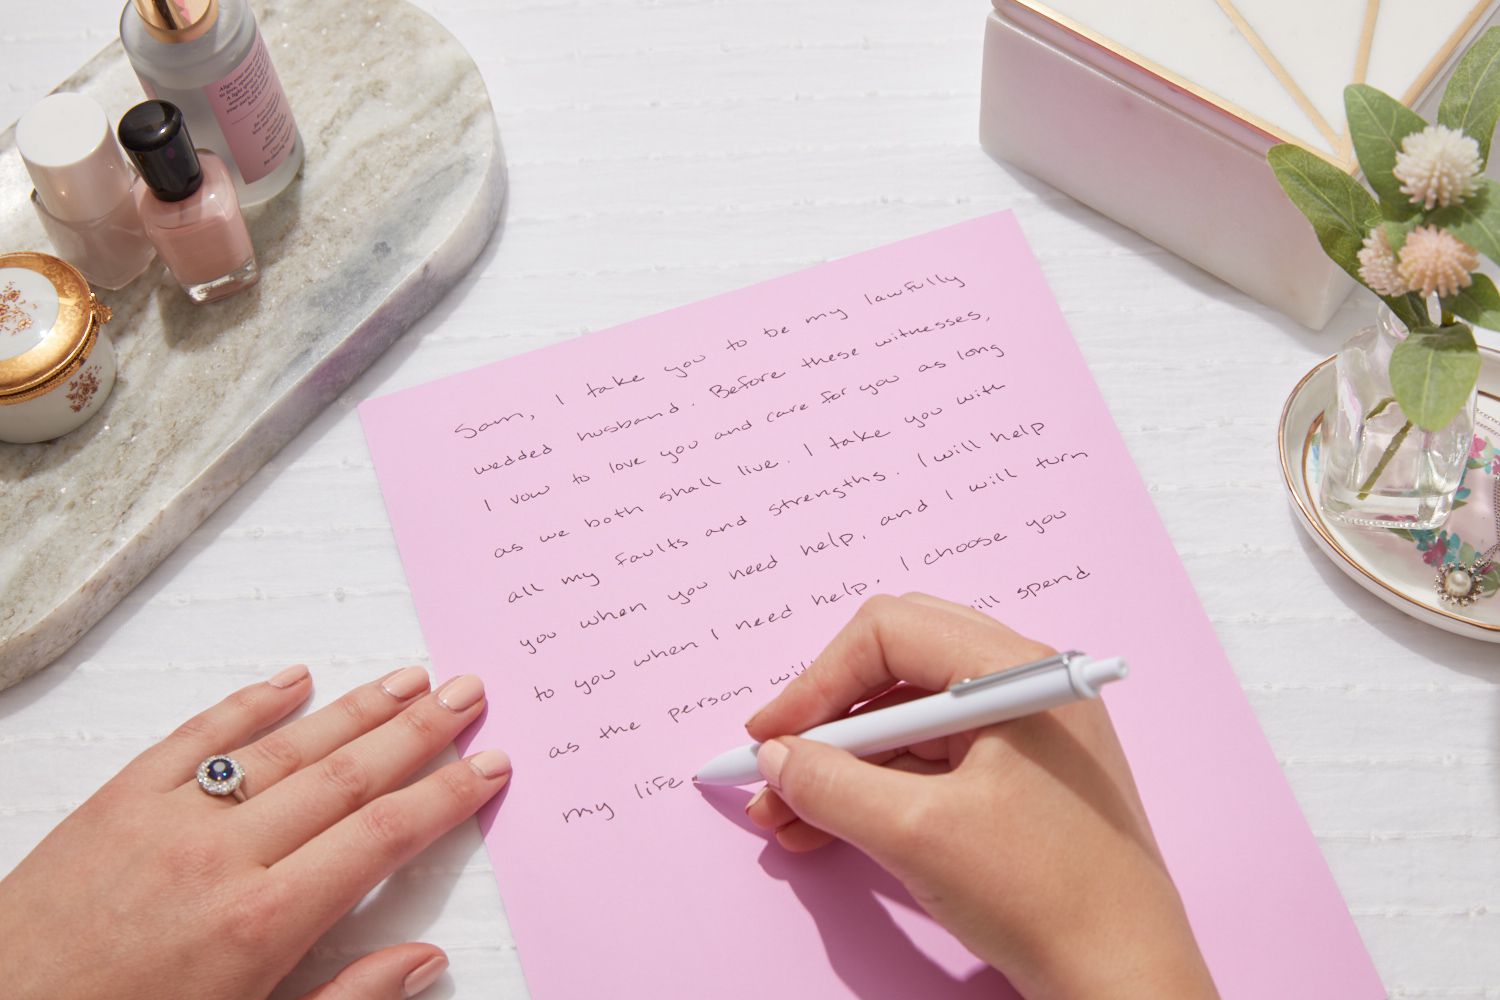 Sam, I take you to be my lawfully
wedded husband. Before these witnesses,
I vow to love you and care for you as long
as we both shall live. I take you with
all my faults and strengths. I will help
you when you need help, and I will turn
to you when I need help. I choose you
as the person will spend
my life